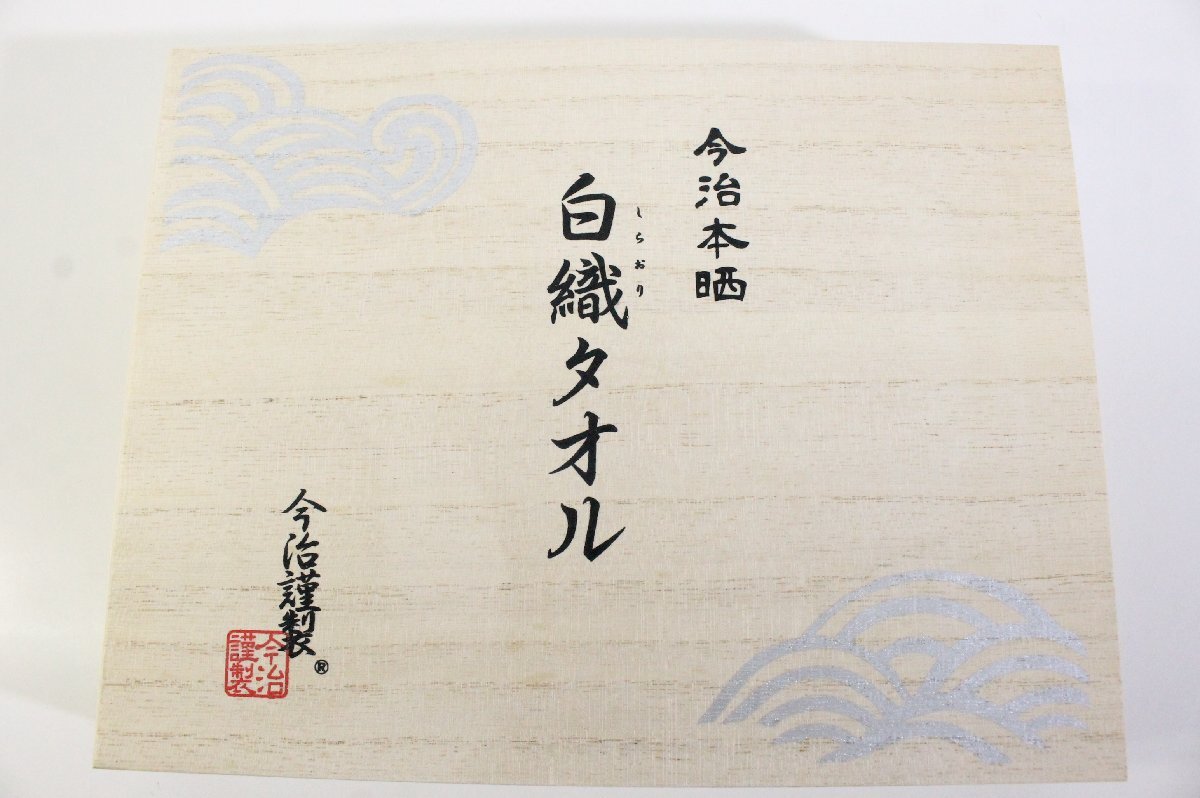 今治本晒
しらおり
白織タオル
今治謹製®
今治
謹製